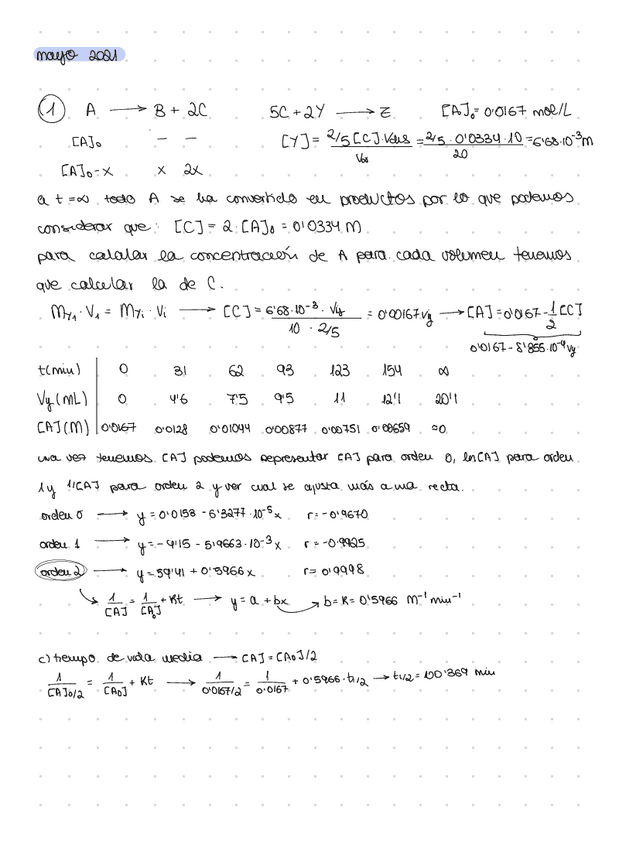 mayo 2021
1 A → B + 2C 5C + 2Y → Z [A]₀ = 0'0167 mol/L
[A]₀ — — [Y] = 2/5 [C]·Vdis / Vy = 2/5 · 0'0334 · 10 / 20 = 6'68·10⁻³ M
[A]₀-x x 2x
a t = ∞ todo A se ha convertido en productos por lo que podemos
considerar que: [C] = 2·[A]₀ = 0'0334 M
para calcular la concentración de A para cada volumen tenemos
que calcular la de C.
My₁·V₁ = Myᵢ·Vᵢ → [C] = 6'68·10⁻³·Vy / 10·2/5 = 0'00167Vy → [A] = 0'0167 - 1/2 [C]
0'0167 - 8'355·10⁻⁴Vy
t(min) 0 31 62 93 123 154 ∞
Vy(mL) 0 4'6 7'5 9'5 11 12'1 20'1
[A](M) 0'0167 0'0128 0'01044 0'00877 0'00751 0'00659 ≈0
una vez tenemos [A] podemos representar [A] para orden 0, ln[A] para orden
1 y 1/[A] para orden 2 y ver cual se ajusta más a una recta.
orden 0 → y = 0'0158 - 6'3277·10⁻⁵x r = -0'9670
orden 1 → y = -4'15 - 5'9663·10⁻³x r = -0'9925
orden 2 → y = 59'41 + 0'5966x r = 0'9998
1/[A] = 1/[A₀] + Kt → y = a + bx → b = K = 0'5966 M⁻¹ min⁻¹
c) tiempo de vida media → [A] = [A₀]/2
1/[A]₀/2 = 1/[A₀] + Kt → 1/0'0167/2 = 1/0'0167 + 0'5966·t1/2 → t1/2 = 100'369 min